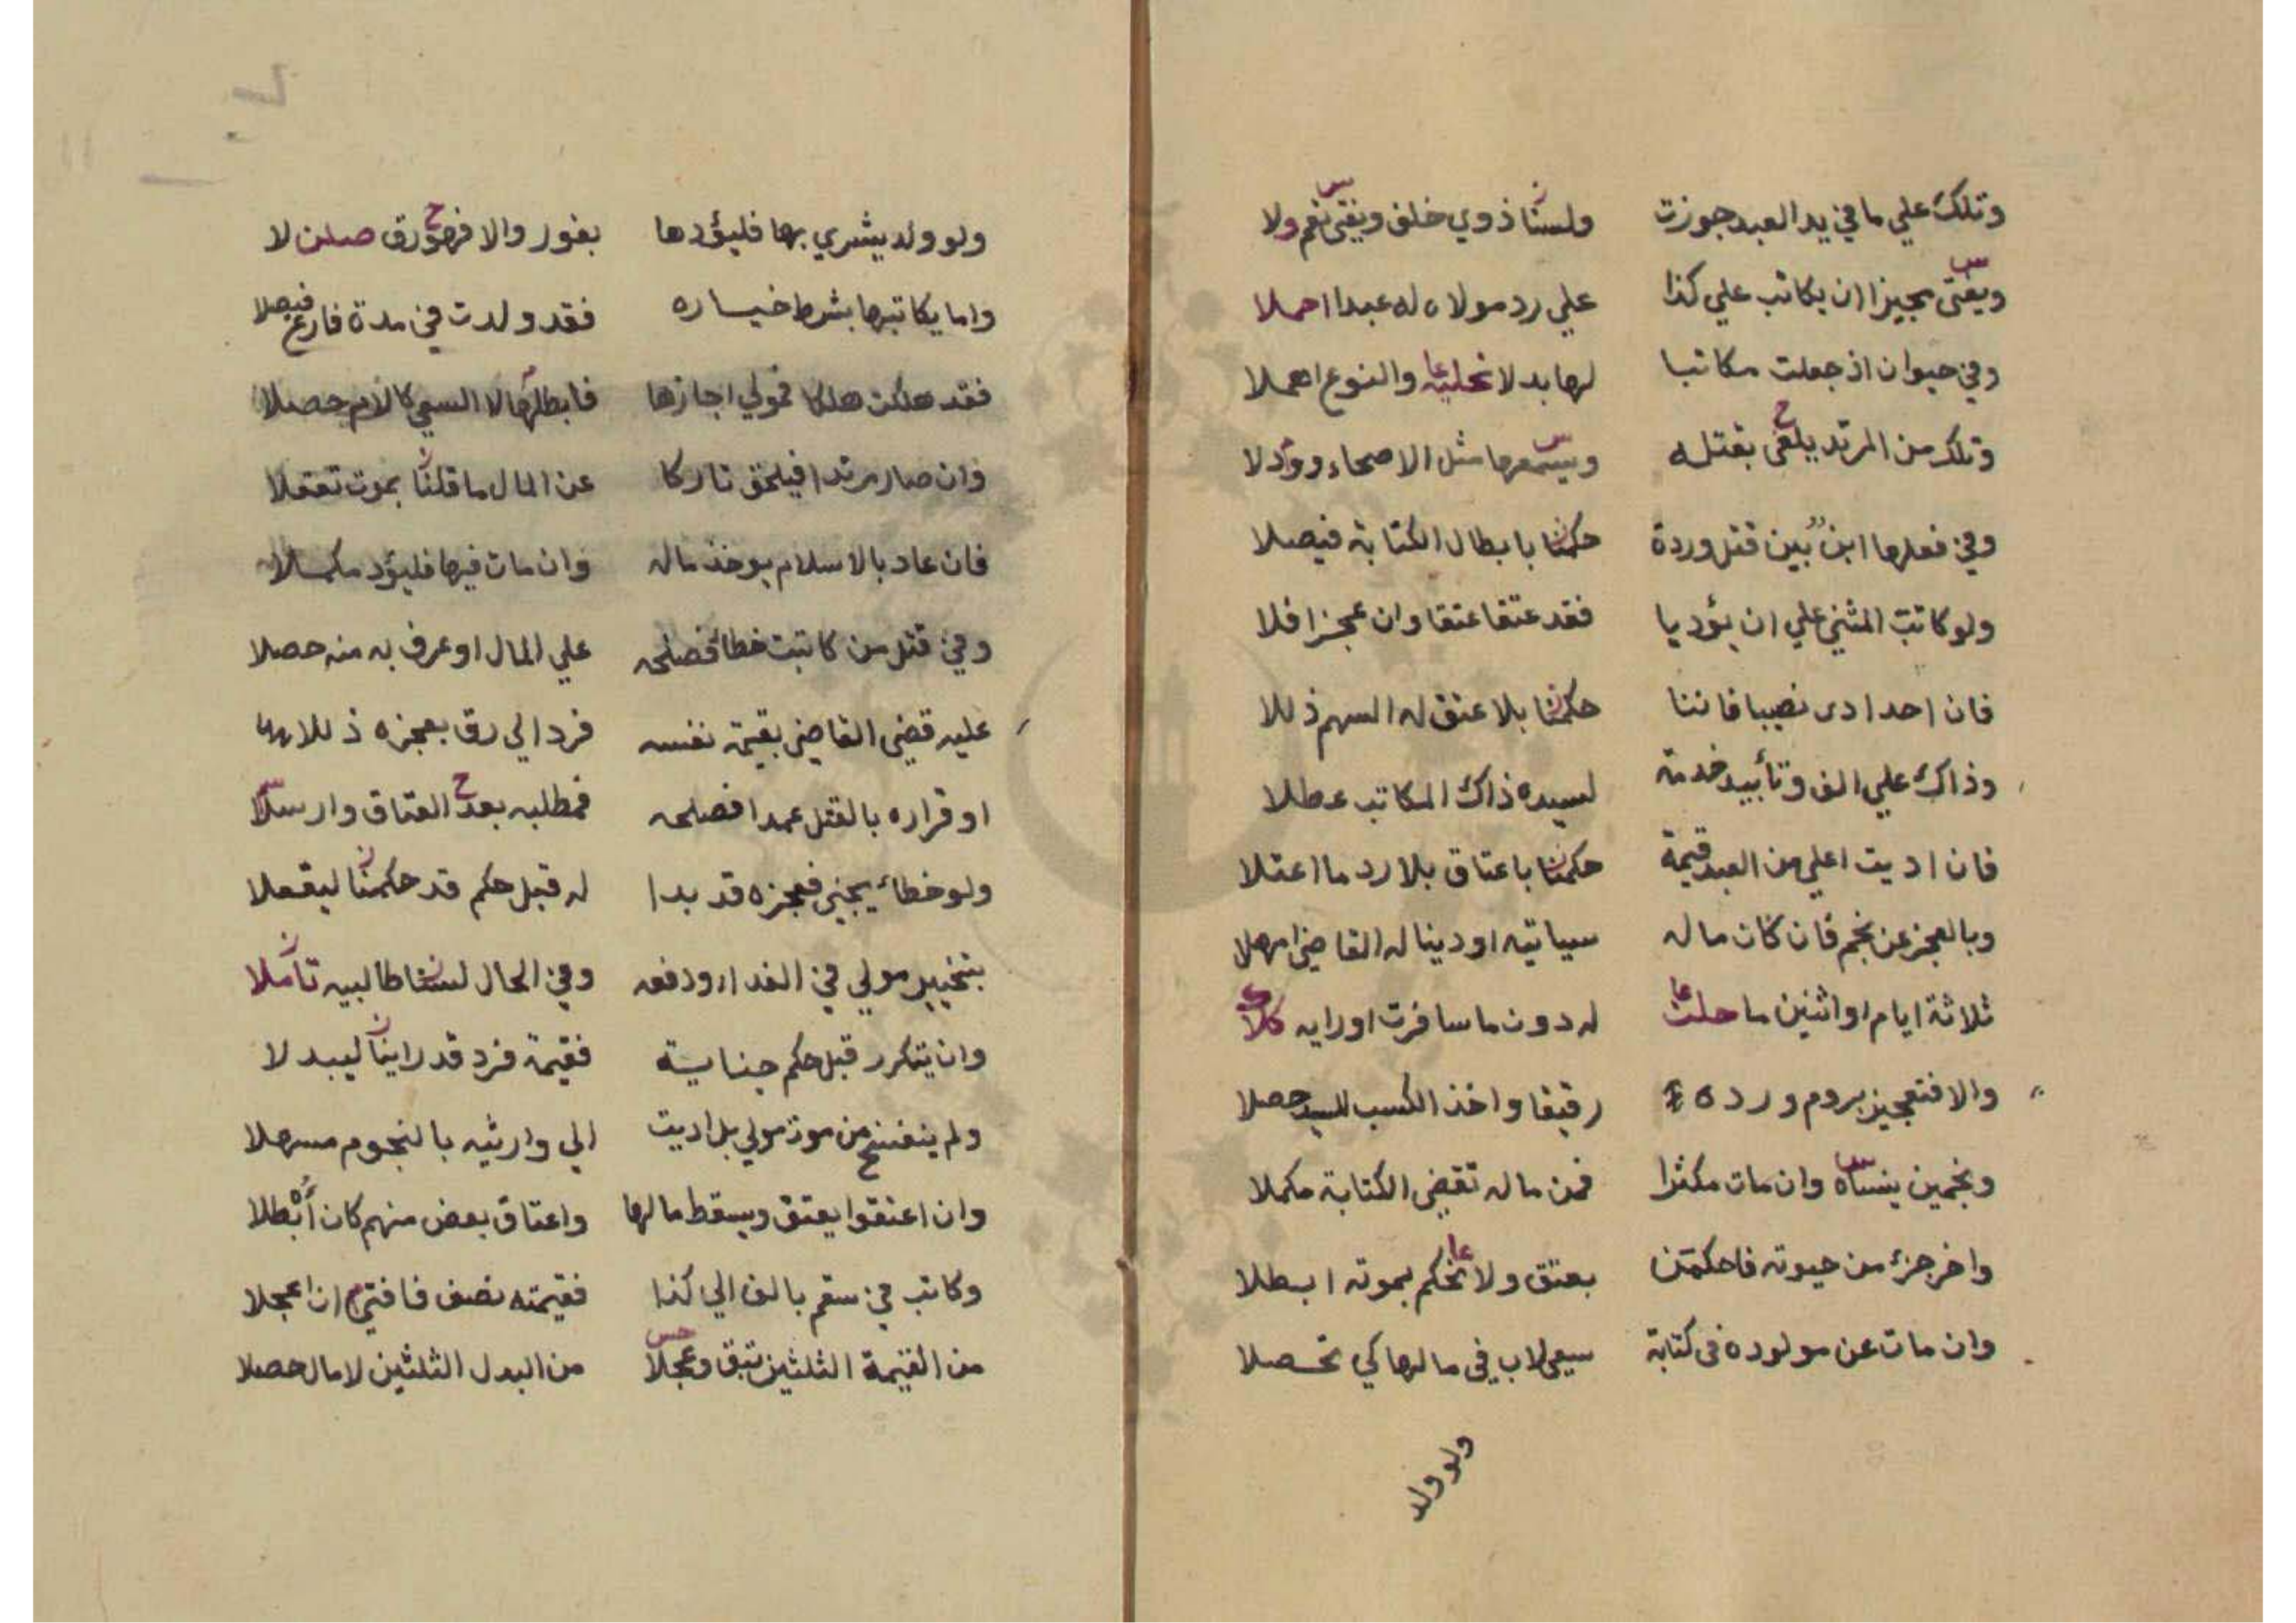 وتلك علي ما في يد العبد جوزت ولسنا ذوي خلف ويفتى نعم ولا
ويفتى مجيزا ان يكاتب علي كذا علي رد مولاه له عبدا احملا
وفي حيوان اذ جعلت مكاتبا لها بدلا تحليه والنوع اهملا
وتلك من المرتد يلغى بقتله ويسمعها مثل الاصحاء
وفي فعلها ابن بين قتل وردة حكمنا بابطال الكتابة فيصلا
ولو كاتب المثني علي ان يؤديا فقد عتقا عتقا وان عجزا فلا
فان احد ادى نصيبا فاننا حكمنا بلا عتق له السهم ذللا
وذاك علي الف وتأبيد خدمة لسيده ذاك المكاتب عطلا
فان اديت اعلي من العبد قيمة حكمنا باعتاق بلا رد ما اعتلا
وبالعجز عن نجم فان كان ماله سياتيه او دينا له القاضي امهلا
ثلاثة ايام او اثنين ما حلت له دون ما سافرت او رايه كلا
والا فتعجيز بروم ورده رقيقا واخذ الكسب للسيد حصلا
ونجمين ينساه وان مات مكثرا فمن ماله تقضي الكتابة مكملا
واخر جزء من حيوته فاحكمن بعتق ولا نحكم بموته ابطلا
وان مات عن مولوده في كتابة سيعى لاب في مالها كي تحصلا
ولو ولد
ولو ولد يشري بها فليؤدها بفور والا فهو رق صلن لا
واما يكاتبها بشرط خياره فقد ولدت في مدة فارع فيصلا
فقد هلكت هلكا فمولي اجازها فابطلها لا السعي كالام حصلا
وان صار مرتدا فيلحق تاركا عن المال ما قلنا بموت تعقلا
فان عاد بالاسلام يوخذ ماله وان مات فيها فليؤد مكملا
وفي قتل من كاتبت خطا فصلحه علي المال او عرف به منه حصلا
عليه قضي القاضي بقيمة نفسه فرد الي رق بعجزه ذللا
او قراره بالقتل عمدا فصلحه فمطلبه بعد العتاق وارسلا
ولو خطاء يجني فعجزه قد بدا له قبل حكم قد حكمنا ليقعلا
بتخيير مولي في الفداء ودفعه وفي الحال لسنا طالبيه تاملا
وان يتكرر قبل حكم جناية فقيمة فرد قد راينا ليبدلا
ولم ينفسخ من موت مولي بل اديت الي وارثيه بالنجوم مسهلا
وان اعتقوا يعتق ويسقط مالها واعتاق بعض منهم كان أبطلا
وكاتب في سقم بالف الي كذا فقيمته نصف فافتي ان اعجلا
من القيمة الثلثين تبق وعجلا من البدل الثلثين لا مال حصلا